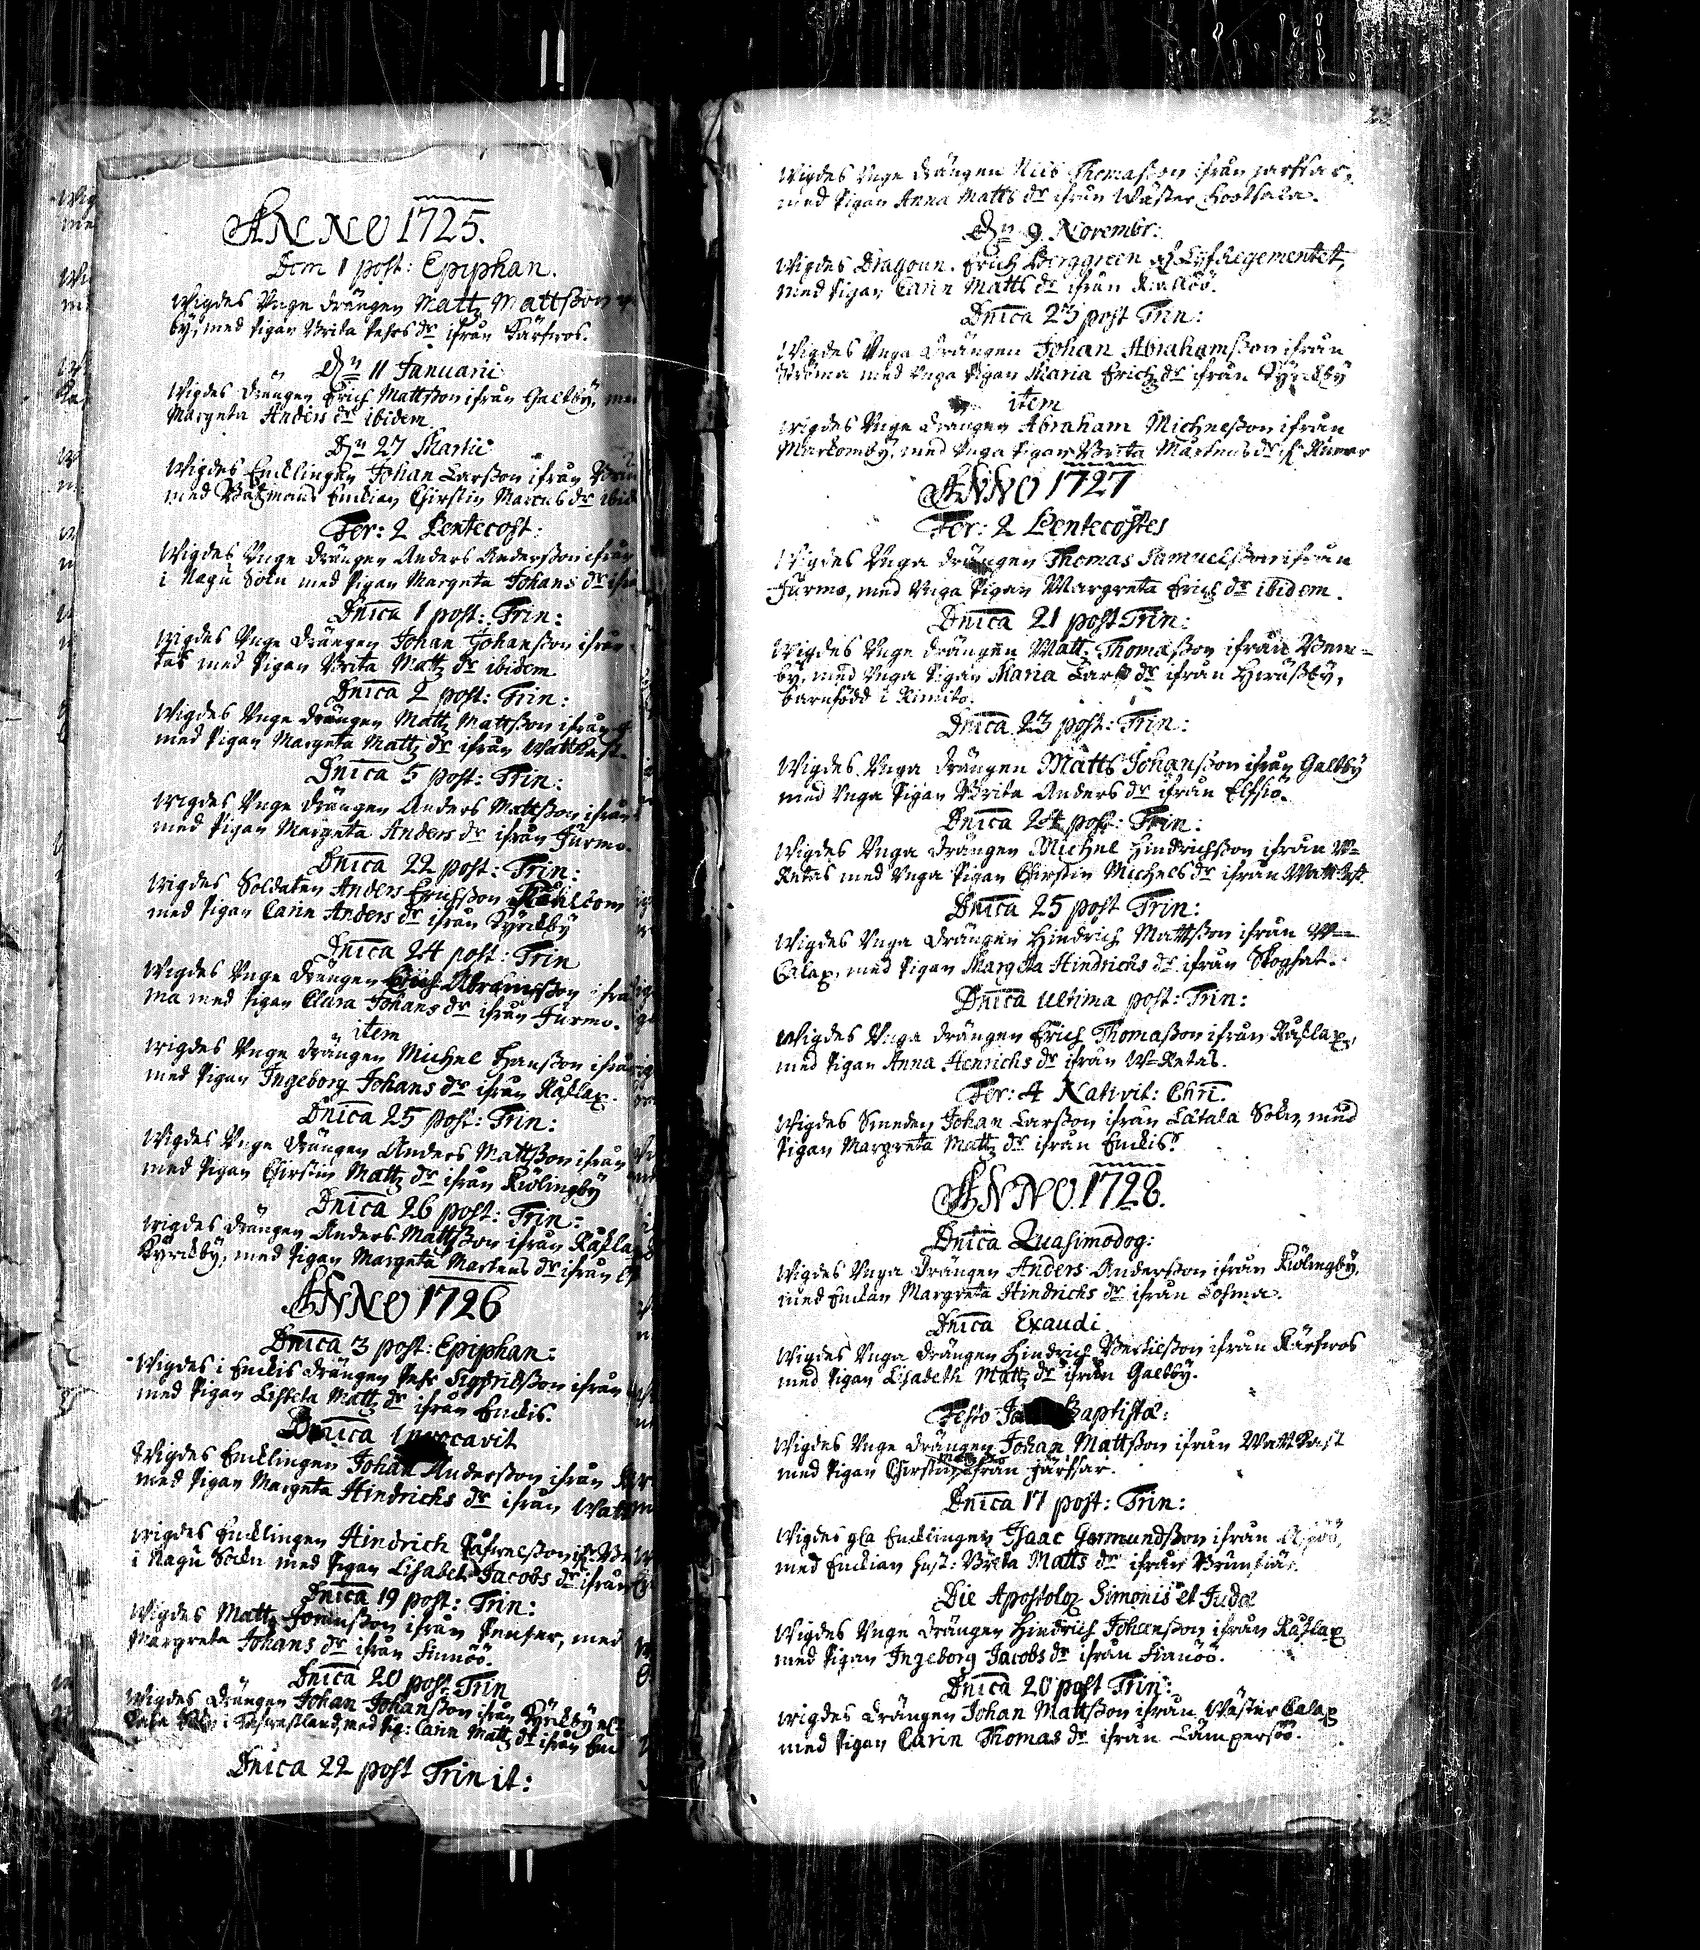 ANNO 1725.
Dom 1 post: Epiphan.
Wigdes Unge drängen Matz Mattsson
by, med Pigan Brita Pehrs dr ifrån Kärfwos.
Dn 11 Januarii
Wigdes drängen Erich Mattsson ifrån Galtby, med
Margeta Anders dr ibidem
Dn 27 Martii
Wigdes Encklingen Johan Larsson ifrån
med Båtzmans Enckian Chirstin Marcus dr ibid
Fer: 2 Pentecost:
Wigdes Unge drängen Anders Andersson ifrån
i Nagu Sokn med Pigan Margeta Johans dr ifrån
Dnica 1 post: Trin:
Wigdes Unge drängen Johan Johansson ifrån
tas med Pigan Brita Matz dr ibidem
Dnica 2 post: Trin:
Wigdes Unge drängen Matz Mattsson ifrån
med Pigan Margeta Matz dr ifrån Wattkast.
Dnica 5 post: Trin:
Wigdes Unge drängen Anders Mattsson ifrån
med Pigan Margeta Anders dr ifrån Furmo.
Dnica 22 post: Trin:
Wigdes Soldaten Anders Erichsson
med Pigan Carin Anders dr ifrån Kyrckby
Dnica 24 post: Trin
Wigdes Unge drängen Erich Abramsson ifrån
ma med Pigan Clara Johans dr ifrån Furmo.
item
Wigdes Unge drängen Michel Hansson ifrån
med Pigan Ingeborg Johans dr ifrån Raflax.
Dnica 25 post: Trin:
Wigdes Unge drängen Anders Mattsson ifrån
med Pigan Chirstin Matz dr ifrån Rölingby
Dnica 26 post: Trin:
Wigdes drängen Anders Mattsson ifrån Rafla
Kyrckby, med Pigan Margeta Martens dr ifrån
ANNO 1726
Dnica 3 post: Epiphan:
Wigdes i Enckis drängen Pehr Sigfridsson ifrån
med Pigan Lisbeta Matz dr ifrån Enckis.
Dnica Invocavit
Wigdes Encklingen Johan Andersson ifrån
med Pigan Margeta Hindrichs dr ifrån Watt
Wigdes Encklingen Hindrich
i Nagu Sockn med Pigan Lisabet Jacobs dr ifrån
Dnica 19 post: Trin:
Wigdes Matz ifrån Penser, med
Margreta Johans dr ifrån Finnöö.
Dnica 20 post: Trin
Wigdes drängen Johan Johansson ifrån Kyrckby
med Pig: Carin Matz dr ifrån Enc
Dnica 22 post Trinit:
Wigdes Unge drängen Nils Thomasson ifrån Järfsar,
med Pigan Anna Matts dr ifrån Wäster
Dn 9 Novembr:
Wigdes Dragoun. Erich Berggreen af Lyf Regementet,
med Pigan Carin Matts dr ifrån
Dnica 23 post Trin:
Wigdes Unga drängen Johan Abrahamsson ifrån
Ströma med Unga Pigan Maria Erichz dr ifrån Kyrckby
item
Wigdes Unge drängen Abraham Michelsson ifrån
Markomby, med Unga Pigan Brita Martens dr
ANNO 1727
Fer: 2 Pentecostes
Wigdes Unga drängen Thomas Samuelsson ifrån
Furmo, med Unga Pigan Margreta Erichs dr ibidem.
Dnica 21 post Trin:
Wigdes Unge drängen Matt. Thomasson ifrån
by, med Unga Pigan Maria Lars dr ifrån Hwäsby,
barnfödd i Kimito.
Dnica 23 post: Trin:
Wigdes Unga drängen Matts Johansson ifrån Galtby
med Unga Pigan Brita Anders dr ifrån Elfsiö.
Dnica 24 post: Trin:
Wigdes Unga drängen Michel Hindrichsson ifrån W=
Retas med Unga Pigan Chirstin Michels dr ifrån Wattkst
Dnica 25 post Trin:
Wigdes Unga drängen Hindrich Mattsson ifrån W=
Calax, med Pigan Margeta Hindrichs dr ifrån
Dnica Ultima post: Trin:
Wigdes Unga drängen Erich Thomasson ifrån Raflax,
med Pigan Anna Henrichs dr ifrån W=Retas.
Fer: 4 Nativit: Chri.
Wigdes Smeden Johan Larsson ifrån Letala Sokn med
Pigan Margreta Matz dr ifrån Enckis.
ANNO 1728.
Dnica Quasimodog:
Wigdes Unga drängen Anders Andersson ifrån Rölingby,
med Enckan Margreta Hindrichs dr ifrån Lohma.
Dnica Exaudi
Wigdes Unga drängen Hindrich Bertilsson ifrån Kärfwos
med Pigan Lisabeth Matz dr ifrån Galtby.
Festo Baptistæ:
Wigdes Unge drängen Johan Mattsson ifrån Wattkast
med Pigan Chirstin ifrån Järfsar.
Dnica 17 post: Trin:
Wigdes gla Encklingen Isaac Germundsson ifrån
med Enckian Hust: Brita Matts dr ifrån
Die Apostolor Simonis et Judæ
Wigdes Unge drängen Hindrich Johansson ifrån Raflax
med Pigan Ingeborg Jacobs dr ifrån Finnöö.
Dnica 20 post Trin:
Wigdes drängen Johan Mattsson ifrån Wäster Calax
med Pigan Carin Thomas dr ifrån Lämpersiö.